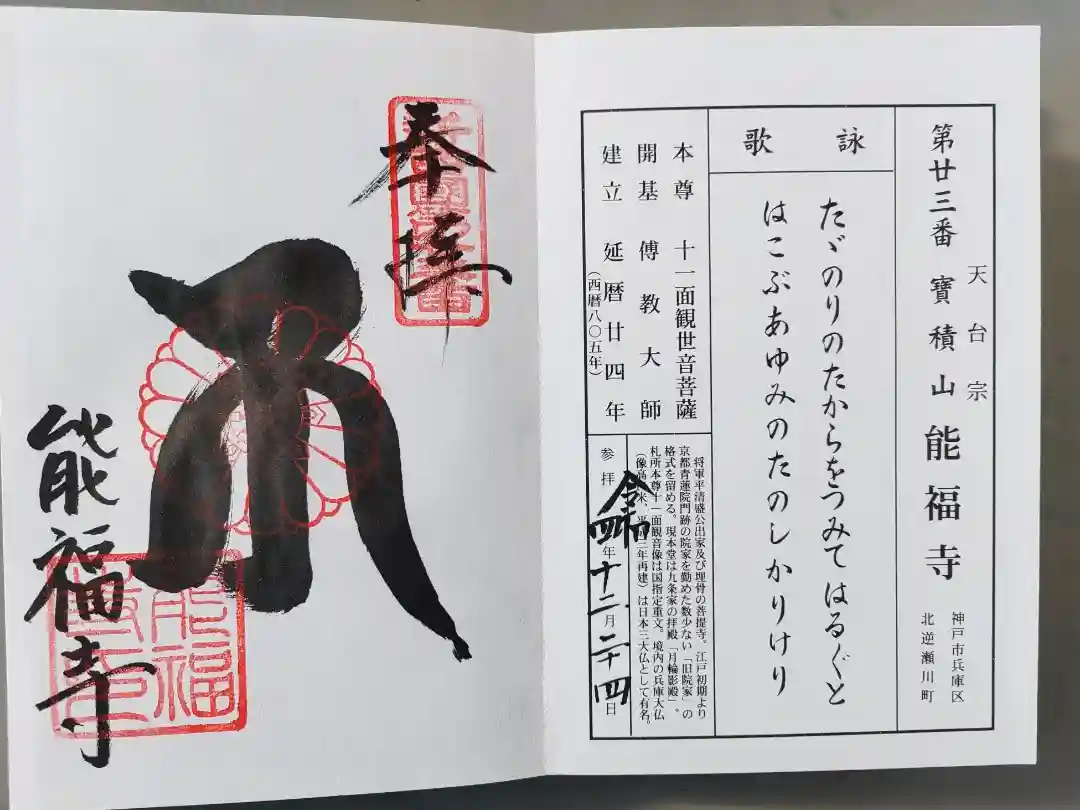 第廿三番 寶積山 能福寺
天台宗
神戸市兵庫区
北逆瀬川町
詠歌
たゞのりのたからをつみてはるぐと
はこぶあゆみのたのしかりけり
本尊 十一面観世音菩薩
開基 傳教大師
建立 延暦廿四年
(西暦八〇五年)
将軍平清盛公出家及び埋骨の菩提寺。江戸初期より
京都青蓮院門跡の院家を勤めた数少ない「旧院家」の
格式を留める。現本堂は九条家の拝殿「月輪影殿」。
札所本尊十一面観音像は国指定重文。境内の兵庫大仏
は日本三大仏として有名。
参拝 令和四年十二月二十四日
奉拝
能福寺
能福